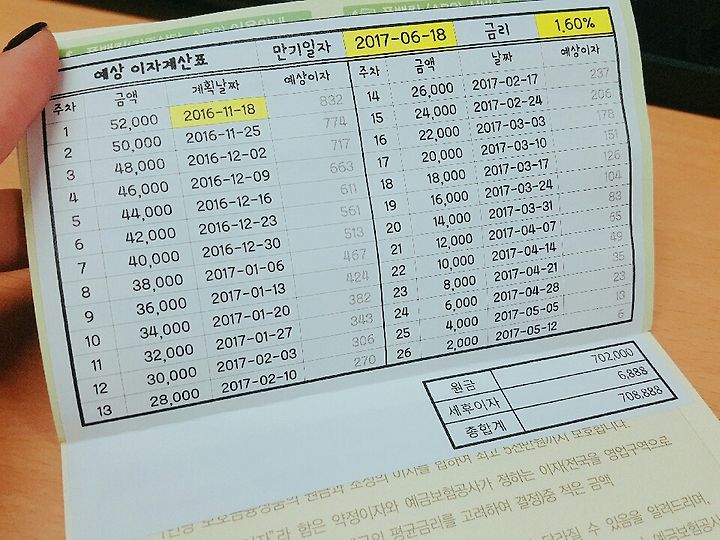 예상 이자계산표 만기일자 2017-06-18 금리 1.60%
주차 금액 계획날짜 예상이자 주차 금액 날짜 예상이자
1 52,000 2016-11-18 832 14 26,000 2017-02-17 237
2 50,000 2016-11-25 774 15 24,000 2017-02-24 206
3 48,000 2016-12-02 717 16 22,000 2017-03-03 178
4 46,000 2016-12-09 663 17 20,000 2017-03-10 151
5 44,000 2016-12-16 611 18 18,000 2017-03-17 126
6 42,000 2016-12-23 561 19 16,000 2017-03-24 104
7 40,000 2016-12-30 513 20 14,000 2017-03-31 83
8 38,000 2017-01-06 467 21 12,000 2017-04-07 65
9 36,000 2017-01-13 424 22 10,000 2017-04-14 49
10 34,000 2017-01-20 382 23 8,000 2017-04-21 35
11 32,000 2017-01-27 343 24 6,000 2017-04-28 23
12 30,000 2017-02-03 306 25 4,000 2017-05-05 13
13 28,000 2017-02-10 270 26 2,000 2017-05-12 6
원금 702,000
세후이자 6,888
총합계 708,888
원금과 소정의 이자를 합하여 최고 5천만원까지 보호됩니다.
라 함은 약정이자와 예금보험공사가 정하는 이자(전국을 영업구역으로
평균금리를 고려하여 결정)중 적은 금액
달라질 수 있음을 알려드리며,
예금보험공사